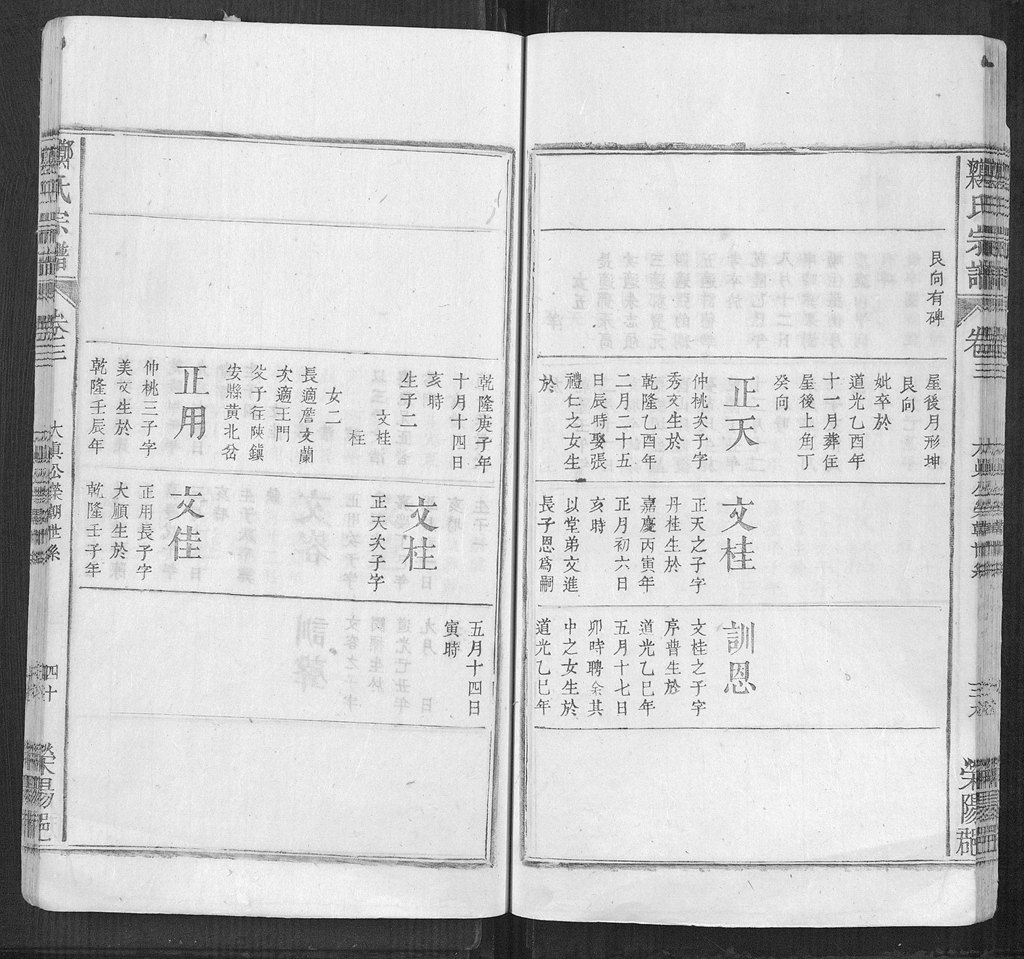 氏宗譜
卷三
三九
榮陽郡
艮向有碑
星後月形坤
艮向
妣卒於
道光乙酉年
十一月葬住
星後上角丁
癸向
正天
仲桃次子字
秀文生於
乾隆乙酉年
二月二十五
日辰時娶張
禮仁之女生
於
文桂
正天之子字
丹桂生於
嘉慶丙寅年
正月初六日
亥時
以堂弟文進
長子恩爲嗣
訓恩
文桂之子字
序普生於
道光乙巳年
五月十七日
卯時聘余其
中之女生於
道光乙巳年
乾隆庚子年
十月十四日
亥時
生子二
文桂
柱
女二
長適詹文蘭
次適王門
父子在陝鎮
安縣黃北岔
正用
仲桃三子字
美文生於
乾隆壬辰年
文柱
正天次子字
文佳
正用長子字
大順生於
乾隆壬子年
五月十四日
寅時
鄭氏宗譜
卷三
大眞公榮朝世系
四十
榮陽